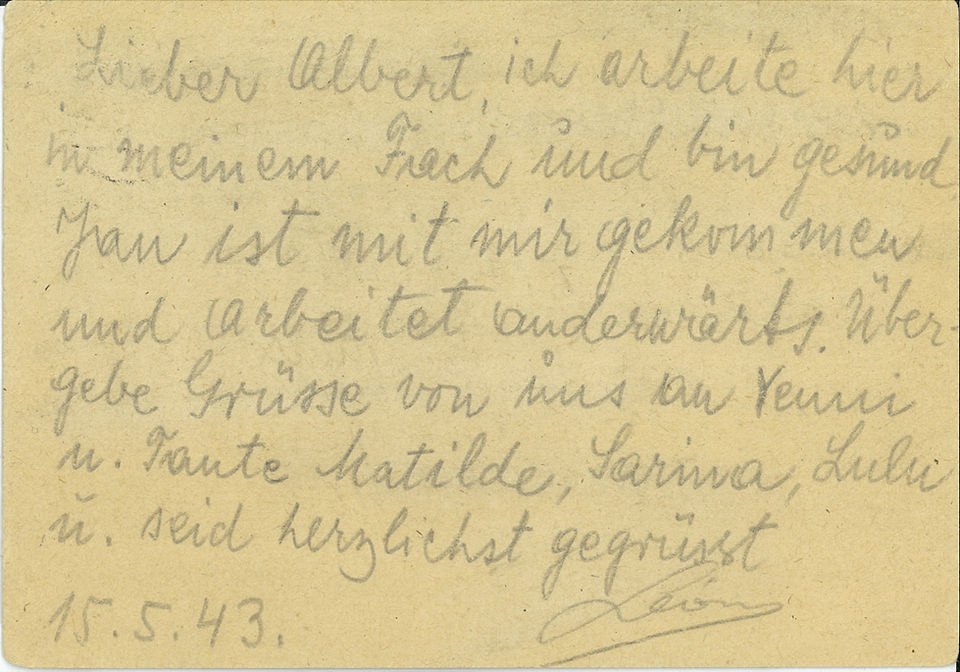 Lieber Albert, ich arbeite hier
in meinem Fach und bin gesund
Jan ist mit mir gekommen
und arbeitet anderwärts. Über-
gebe Grüsse von uns an Yenni
u. Tante Matilde, Sarina, Lulu
u. seid herzlichst gegrüsst
15.5.43. Leon